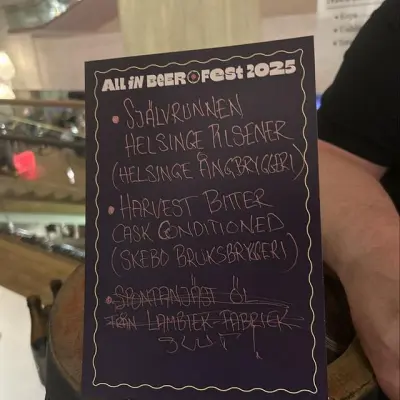 ALL IN BEER FEST 2025
• SJÄLVRUNNEN
HELSINGE PILSENER
(HELSINGE ÅNGBRYGGERI)
• HARVEST BITTER
CASK CONDITIONED
(SKEBO BRUKSBRYGGERI)
• SPONTANJÄST ÖL
FRÅN LAMBIEK FABRIEK
SLUT!